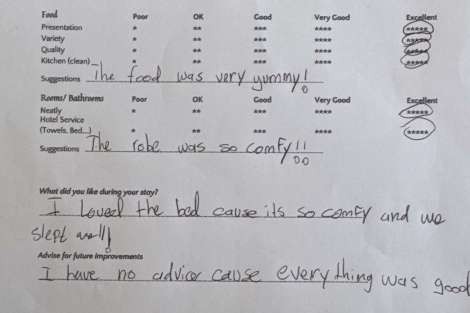 Food Poor OK Good Very Good Excellent
Presentation * ** *** **** *****
Variety * ** *** **** *****
Quality * ** *** **** *****
Kitchen (clean) * ** *** **** *****
Suggestions The food was very yummy!
Rooms/ Bathrooms Poor OK Good Very Good Excellent
Neatly * ** *** **** *****
Hotel Service
(Towels, Bed...) * ** *** **** *****
Suggestions The robe was so comfy!!
What did you like during your stay?
I Loved the bed cause its so comfy and we
slept well!
Advise for future improvements
I have no advice cause everything was good